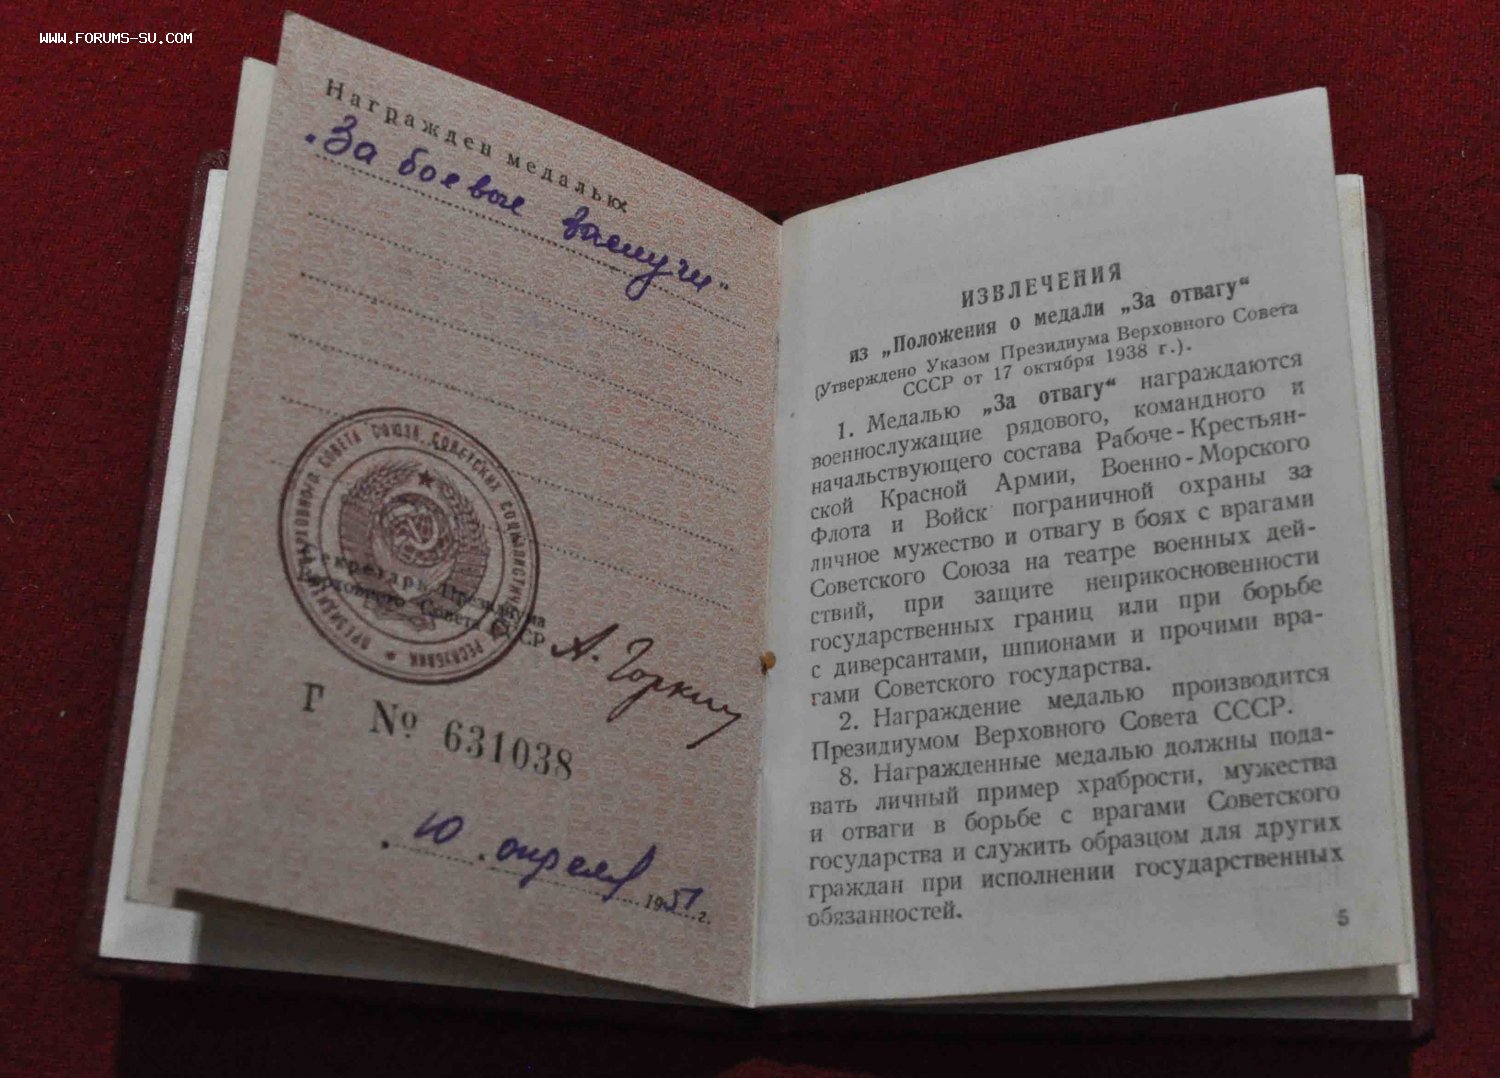 WWW.FORUMS-SU.COM
Награжден медалью
„За боевые заслуги"
ПРЕЗИДИУМ ВЕРХОВНОГО СОВЕТА СОЮЗА СОВЕТСКИХ СОЦИАЛИСТИЧЕСКИХ РЕСПУБЛИК
Секретарь Президиума
Верховного Совета СССР
А. Горкин
Г № 631038
„10" апреля 1951 г.
ИЗВЛЕЧЕНИЯ
из „Положения о медали „За отвагу“
(Утверждено Указом Президиума Верховного Совета
СССР от 17 октября 1938 г.).
1. Медалью „За отвагу“ награждаются
военнослужащие рядового, командного и
начальствующего состава Рабоче-Крестьян-
ской Красной Армии, Военно-Морского
Флота и Войск пограничной охраны за
личное мужество и отвагу в боях с врагами
Советского Союза на театре военных дей-
ствий, при защите неприкосновенности
государственных границ или при борьбе
с диверсантами, шпионами и прочими вра-
гами Советского государства.
2. Награждение медалью производится
Президиумом Верховного Совета СССР.
8. Награжденные медалью должны пода-
вать личный пример храбрости, мужества
и отваги в борьбе с врагами Советского
государства и служить образцом для других
граждан при исполнении государственных
обязанностей.
5